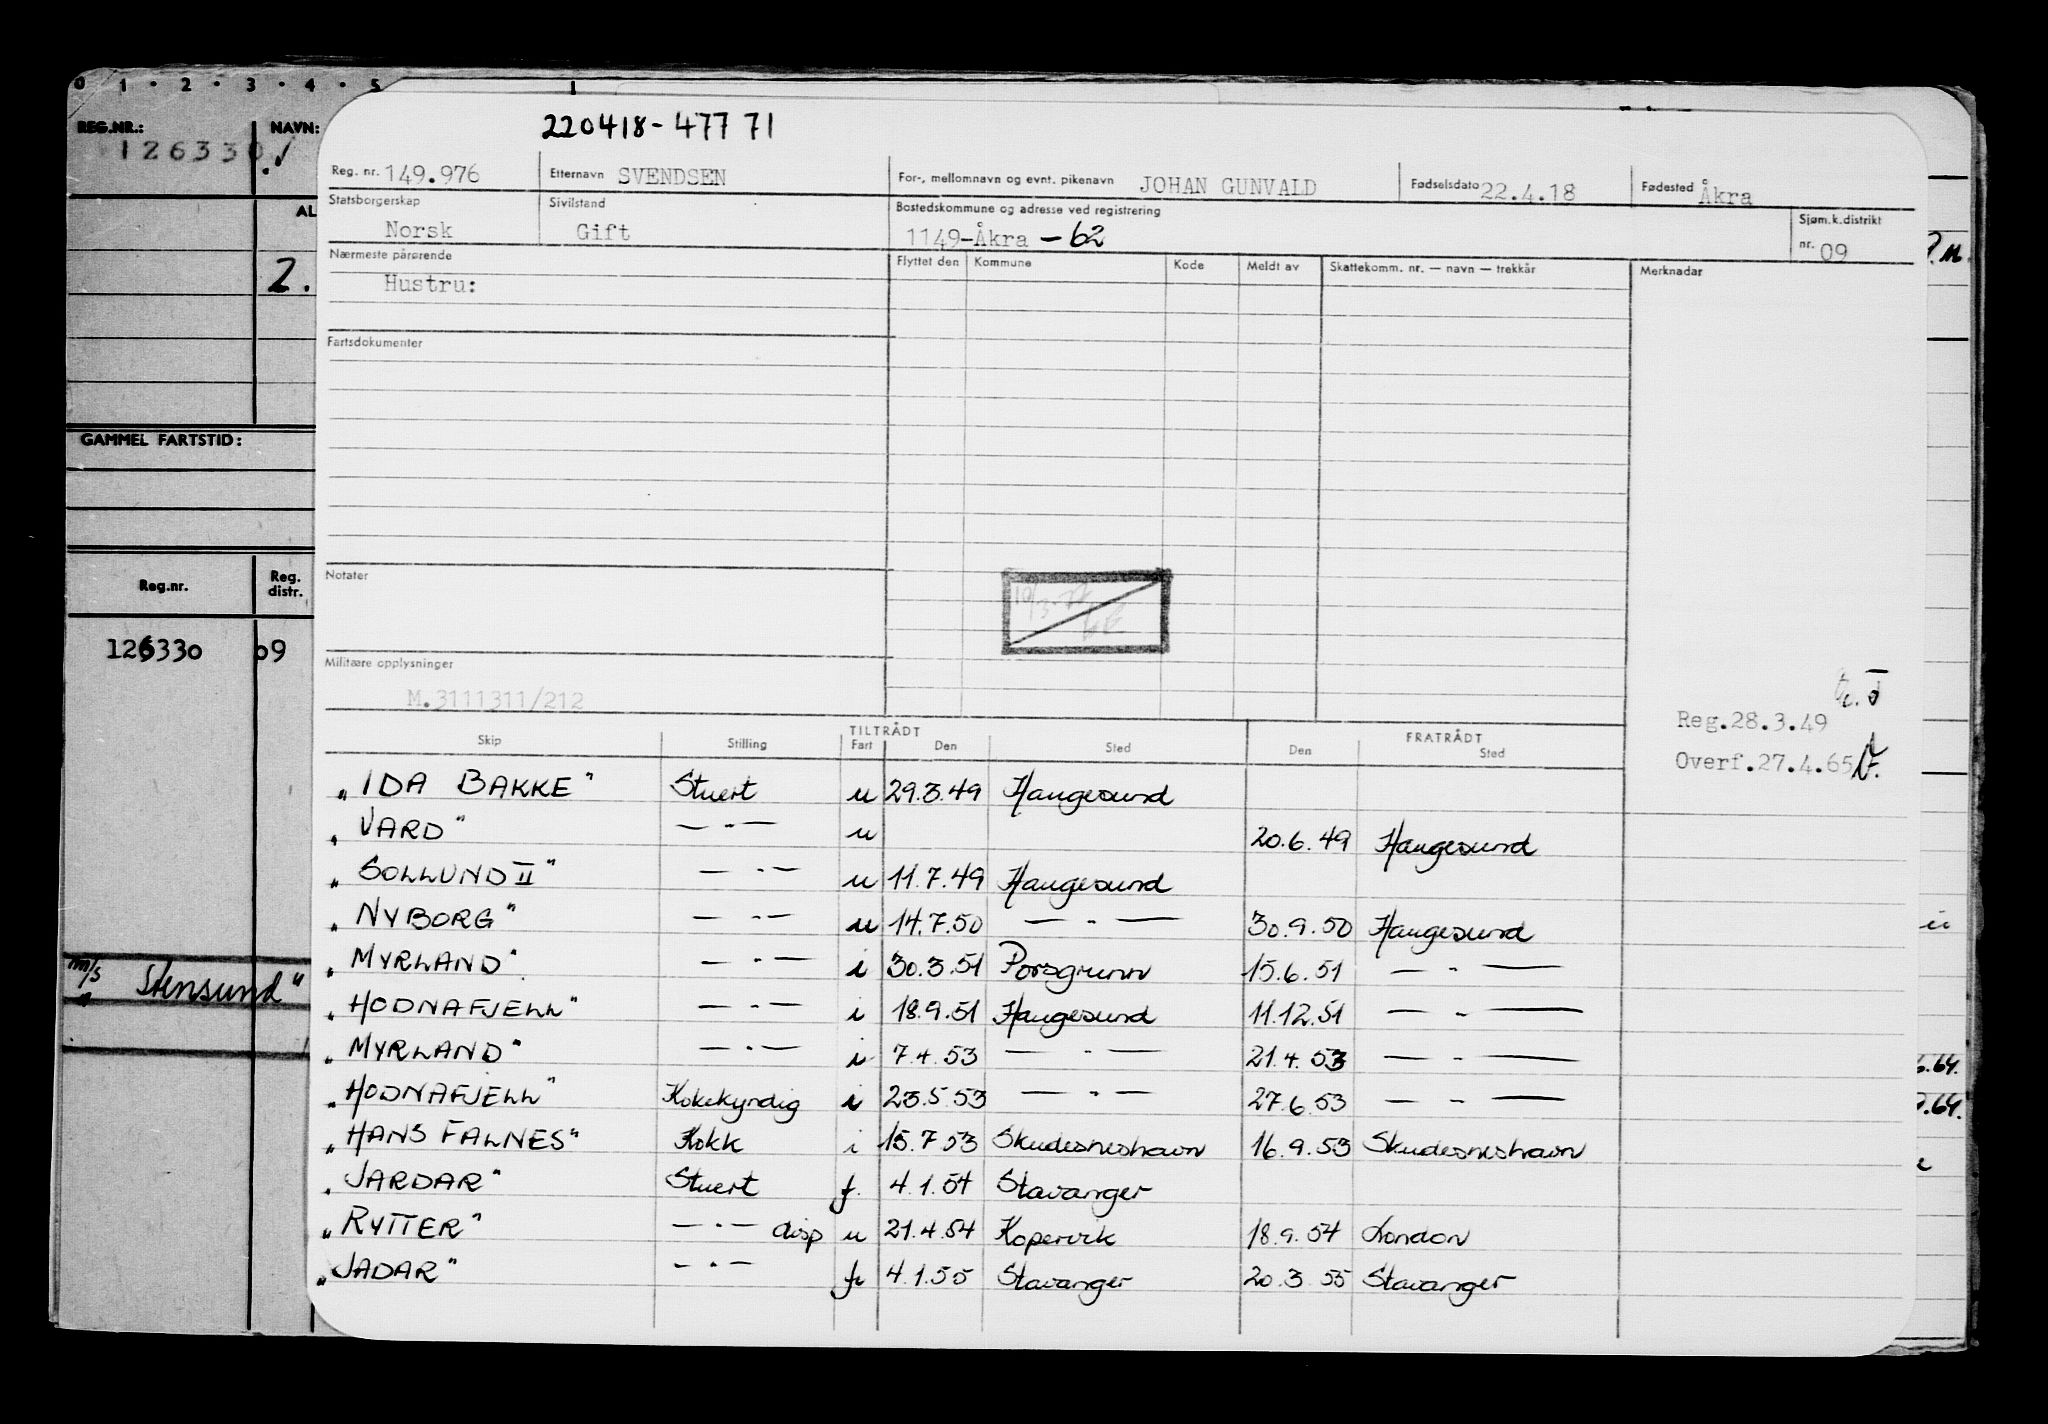 0 1 · 2 · 3 · 4 · 5 1
REG.NR.: NAVN:
126330
AL
2.
GAMMEL FARTSTID:
Reg.nr. Reg. distr.
126330 09
m/s "Stensund"
220418-477 71
Reg. nr. 149.976 Etternavn SVENDSEN For-, mellomnavn og evnt. pikenavn JOHAN GUNVALD Fødselsdato 22.4.18 Fødested Åkra
Statsborgerskap Norsk Sivilstand Gift Bostedskommune og adresse ved registrering 1149-Åkra -62 Sjøm.k.distrikt nr. 09
Nærmeste pårørende Flyttet den Kommune Kode Meldt av Skattekomm. nr. — navn — trekkår Merknadar
Hustru:
Fartsdokumenter
Notater
Militære opplysninger
M.3111311/212
Reg.28.3.49
Overf.27.4.65
TILTRÅDT FRATRÅDT
Skip Stilling Fart Den Sted Den Sted
"IDA BAKKE" Stuert u 29.3.49 Haugesund
"VARD" — " — u 20.6.49 Haugesund
"SOLLUND II" — " — u 11.7.49 Haugesund
"NYBORG" — " — u 14.7.50 — " — 30.9.50 Haugesund
"MYRLAND" — " — i 30.3.51 Porsgrunn 15.6.51 — " —
"HODNAFJELL" — " — i 18.9.51 Haugesund 11.12.51 — " —
"MYRLAND" — " — i 7.4.53 — " — 21.4.53 — " —
"HODNAFJELL" Kokekyndig i 23.5.53 — " — 27.6.53 — " —
"HANS FALNES" Kokk i 15.7.53 Skudesneshavn 16.9.53 Skudesneshavn
"JARDAR" Stuert f. 4.1.54 Stavanger
"RYTTER" — " — disp u 21.4.54 Kopervik 18.9.54 London
"JADAR" — " — f. 4.1.55 Stavanger 20.3.55 Stavanger